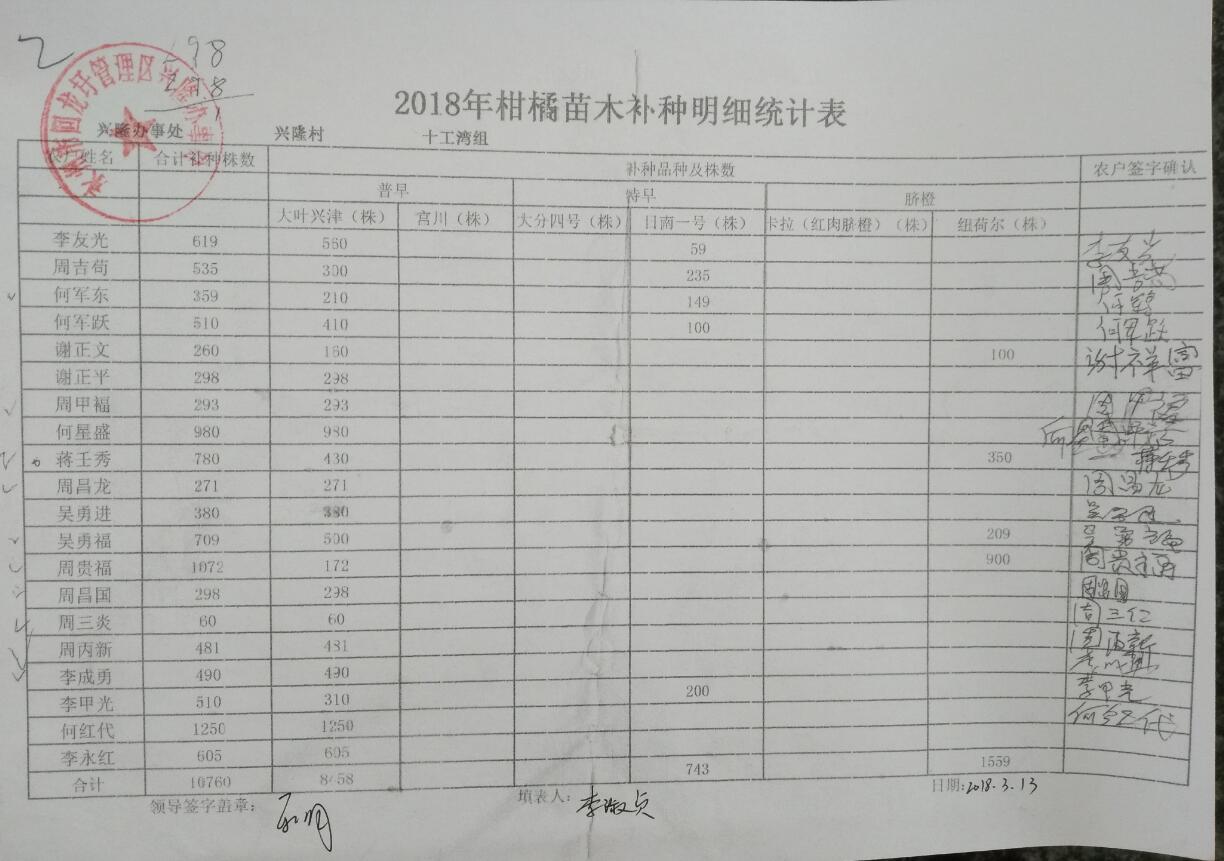 2018年柑橘苗木补种明细统计表
兴隆办事处 兴隆村 十工湾组
农户姓名 合计补种株数 补种品种及株数 农户签字确认
普早 特早 脐橙
大叶兴津（株） 宫川（株） 大分四号（株） 日南一号（株） 卡拉（红肉脐橙）（株） 纽荷尔（株）
李友光 619 560 59 李友光
周吉荀 535 300 235
何军东 359 210 149
何军跃 510 410 100 何军跃
谢正文 260 160 100
谢正平 298 298
周甲福 293 293
何星盛 980 980
蒋壬秀 780 430 350
周昌龙 271 271 周昌龙
吴勇进 380 380
吴勇福 709 500 209 吴勇福
周贵福 1072 172 900 周贵福
周昌国 298 298 周昌国
周三炎 60 60 周三仁
周丙新 481 481 周丙新
李成勇 490 490
李甲光 510 310 200 李甲光
何红代 1250 1250 何红代
李永红 605 605
合计 10760 8458 743 1559
领导签字盖章： 填表人：李淑贞 日期:2018.3.13